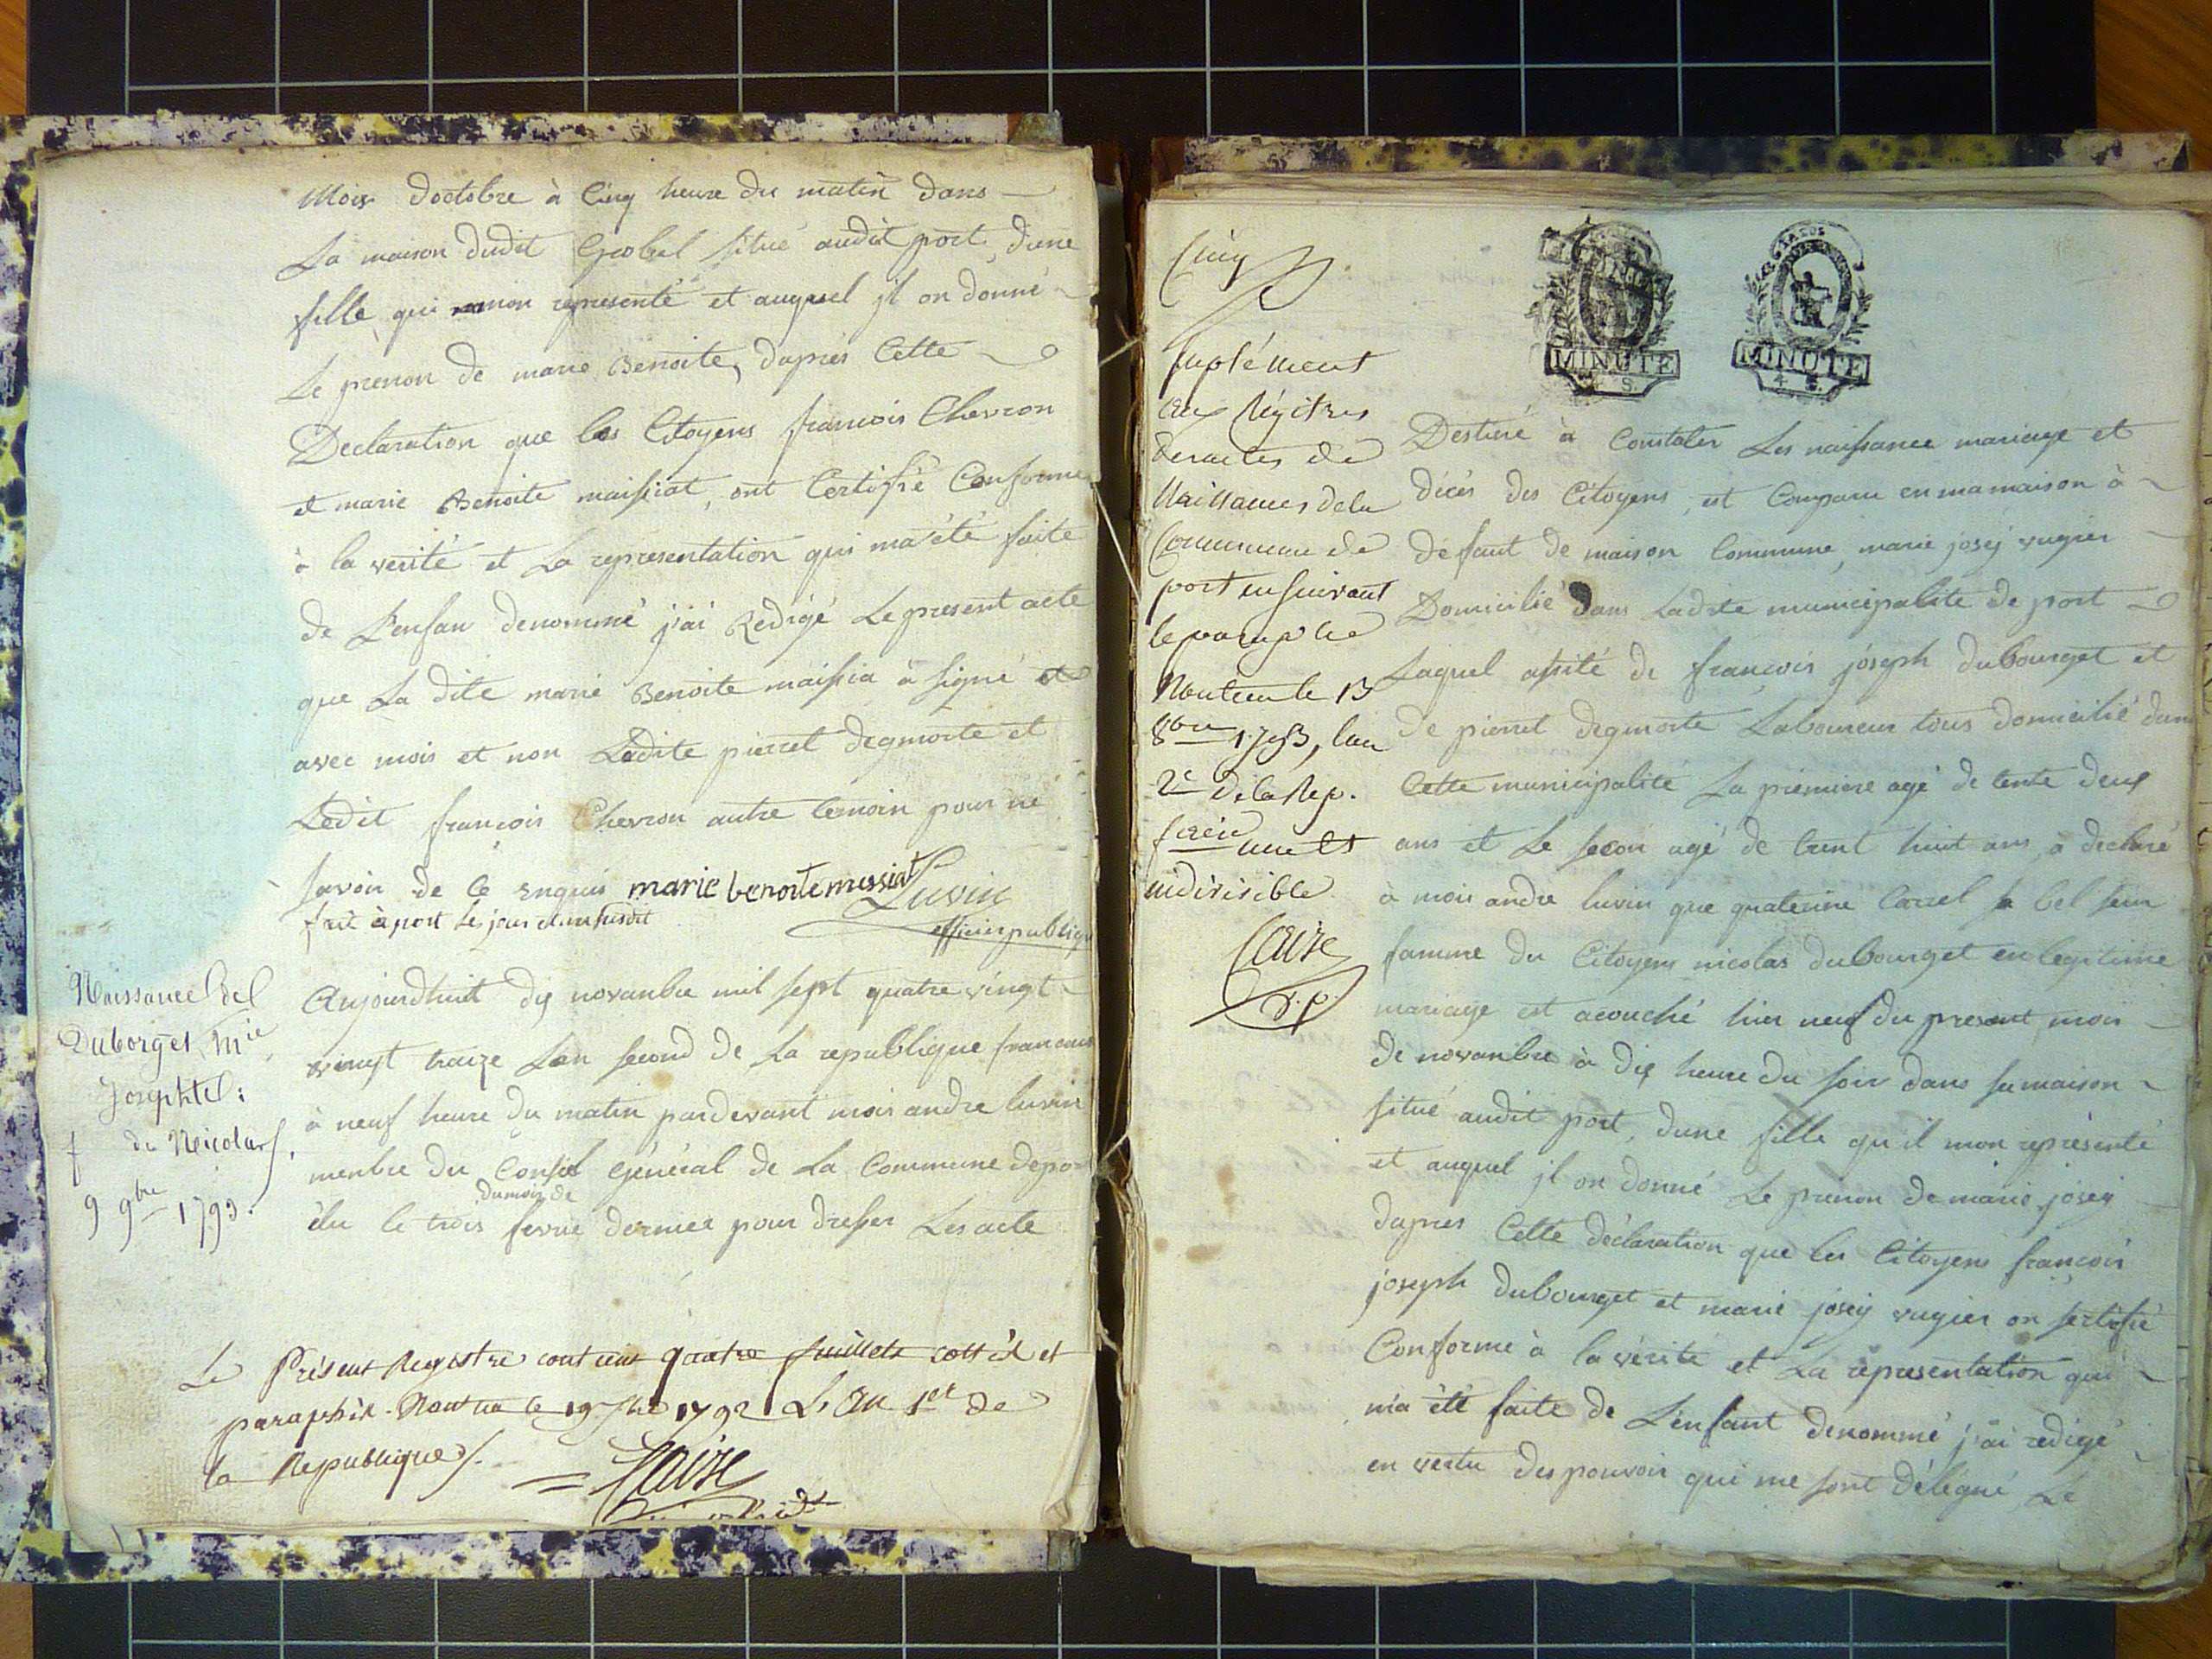 Mois doctobre à Cinq heure du matin dans
La maison dudit Grobel situé audit port, dune
fille qui mon representé et auquel jl on donné
Le prenon de marie Benoite, dapres Cette
Declaration que les Citoyens francois Chevron
et marie Benoite maissiat, ont Certifié Conforme
à la verité et La representation qui ma été faite
de L'enfan denommé j'ai Redigé Le present acte
que La dite marie Benoite maissia à signé et
avec mois et non Ladite pierret degmorte et
Ledit francois Chevron autre temoin pour ne
savoir de ce enquis marie benoite messiat Luvin
fait à port les jour et an susdit officier publiq
Naissance del
Duborget, Mie
Josephte :
f de Nicolas
9 9bre 1793.
Aujourdhuit dix novanbre mil sept quatre vingt
vingt traize Lan second de La republique francaise
à neuf heure du matin pardevant mois andre luvin
menbre du Conseil Général de La Commune de por
du mois de
élu le trois fevrié dernier pour dresser Les acte
Le Présent Registre contient quatre feuillets cotté et
paraphés. Nantua le 19 1792 L'An 1er de
la Republique
Claire
Cinq
suplément
aux Régitres
des actes de
Naissances de la
Commune de
port ensuivant
le paraphe
Nantua le 13
8bre 1793, lan
2e De la Rep.
francaise une et
indivisible
Claire
MINUTE
MINUTE
4 S.
Destiné à Constater Les naissance mariage et
décés des Citoyens, est Comparu en ma maison à
défaut de maison Commune, marie josej vugier
Domicilié dans Ladite municipalité de port
Laquel assité de francois joseph dubourget et
de pierret degmorte Laboureur tous domicilié dans
Cette municipalité La premiere agé de tente deux
ans et Le secon agé de trent huit ans, a declaré
à mois andre luvin que quaterine Carrel sa bel seur
famme du Citoyens nicolas dubourget en legitime
mariage est acouché hier neuf du present mois
de novanbre à dix heure du soir dans sa maison
situé audit port, dune fille qu'il mon représenté
et auquel jl on donné Le prenon de marie josej
dapres Cette déclaration que les Citoyens francois
joseph dubourget et marie josej vugier on sertifié
Conforme à la vérité et La representation qui
m'a été faite de L'enfant denommé j'ai redigé
en vertu des pouvoir qui me sont délégué, Le